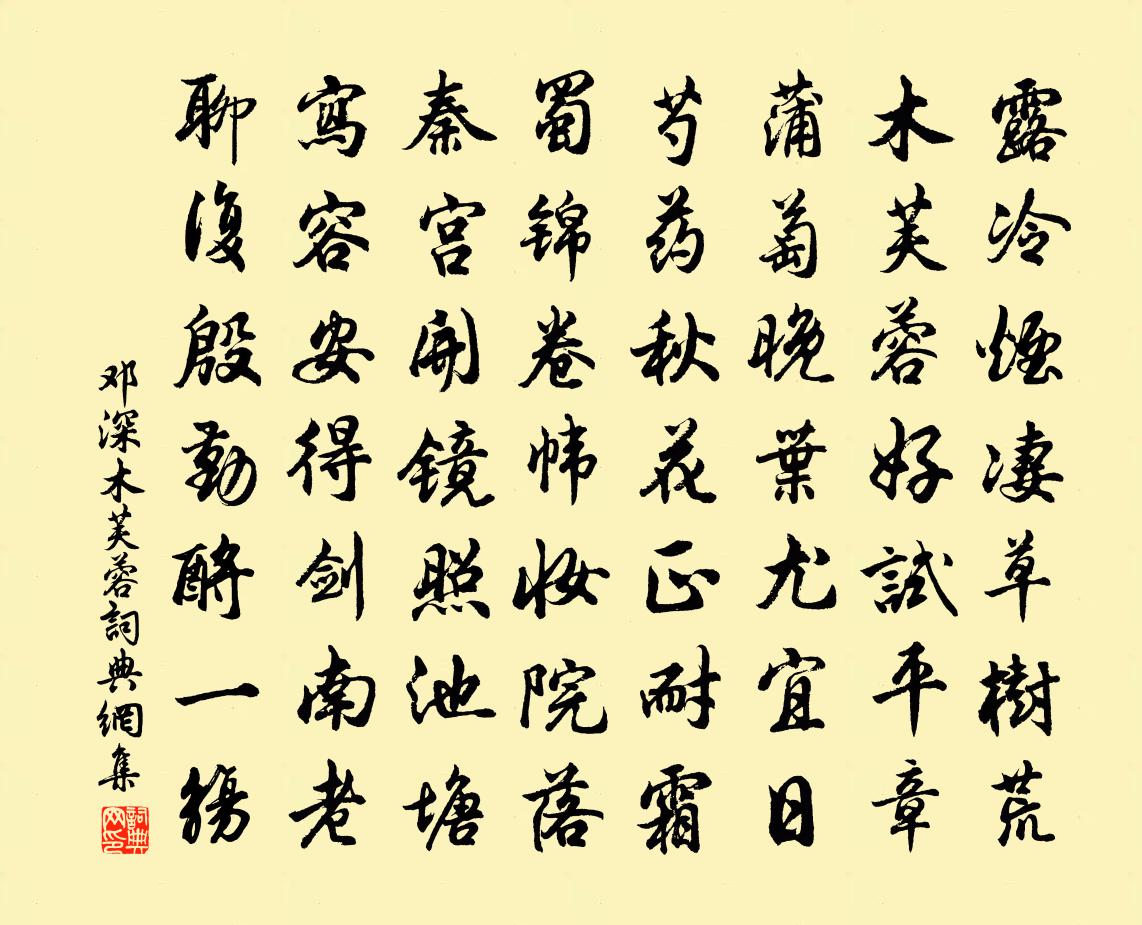 露冷煙凄草樹荒
木芙蓉好試平章
蒲萄晚葉尤宜日
芍药秋花正耐霜
蜀锦卷帏妆院落
秦宫開镜照池塘
寫容安得剑南老
聊復殷勤酹一觴
邓深木芙蓉詞典網集
詞典网印